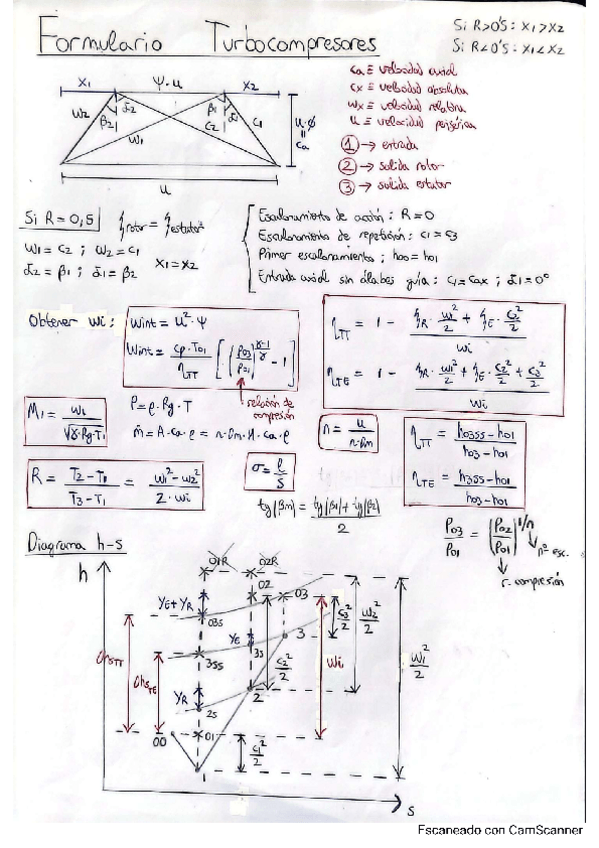 Formulario Turbocompresores
Si R>0'5: x1>x2
Si R<0'5: x1<x2
x1 ψ·u x2
w2 β2 α2 w1 β1 α1 c2 c1
u·φ = ca
u
ca ≡ velocidad axial
cx ≡ velocidad absoluta
wx ≡ velocidad relativa
u ≡ velocidad periférica
① → entrada
② → salida rotor
③ → salida estator
Si R = 0,5 ξrotor = ξestator
w1 = c2 ; w2 = c1
α2 = β1 ; α1 = β2 x1 = x2
Escalonamiento de acción: R=0
Escalonamiento de repetición: c1 = c3
Primer escalonamiento: h00 = h01
Entrada axial sin álabes guía: c1 = cax ; α1 = 0°
Obtener wi: Wint = u²·ψ
Wint = cp·T01/ηTT [(P03/P01)^(γ-1/γ) - 1]
relación de compresión
ηTT = 1 - (ξR·w1²/2 + ξE·c2²/2)/wi
ηTE = 1 - (ξR·w1²/2 + ξE·c2²/2 + c3²/2)/wi
M1 = w1/√(γ·Rg·T1)
P = ρ·Rg·T
ṁ = A·ca·ρ = π·Dm·H·ca·ρ
n = u/π·Dm
ηTT = h03ss - h01/h03 - h01
ηTE = h3ss - h01/h03 - h01
R = T2 - T1/T3 - T1 = w1² - w2²/2·wi
σ = l/s
tg(βm) = tg(β1) + tg(β2)/2
P03/P01 = (P02/P01)^1/n
nº esc.
r. compresión
Diagrama h-s
h
01R 02R
02 03
YE+YR 03s YE 3s 3
3ss
YR 2s 2
00 01
ΔhsTT ΔhsTE
c1²/2 c2²/2 Wi c3²/2 w2²/2 w1²/2
s
Escaneado con CamScanner